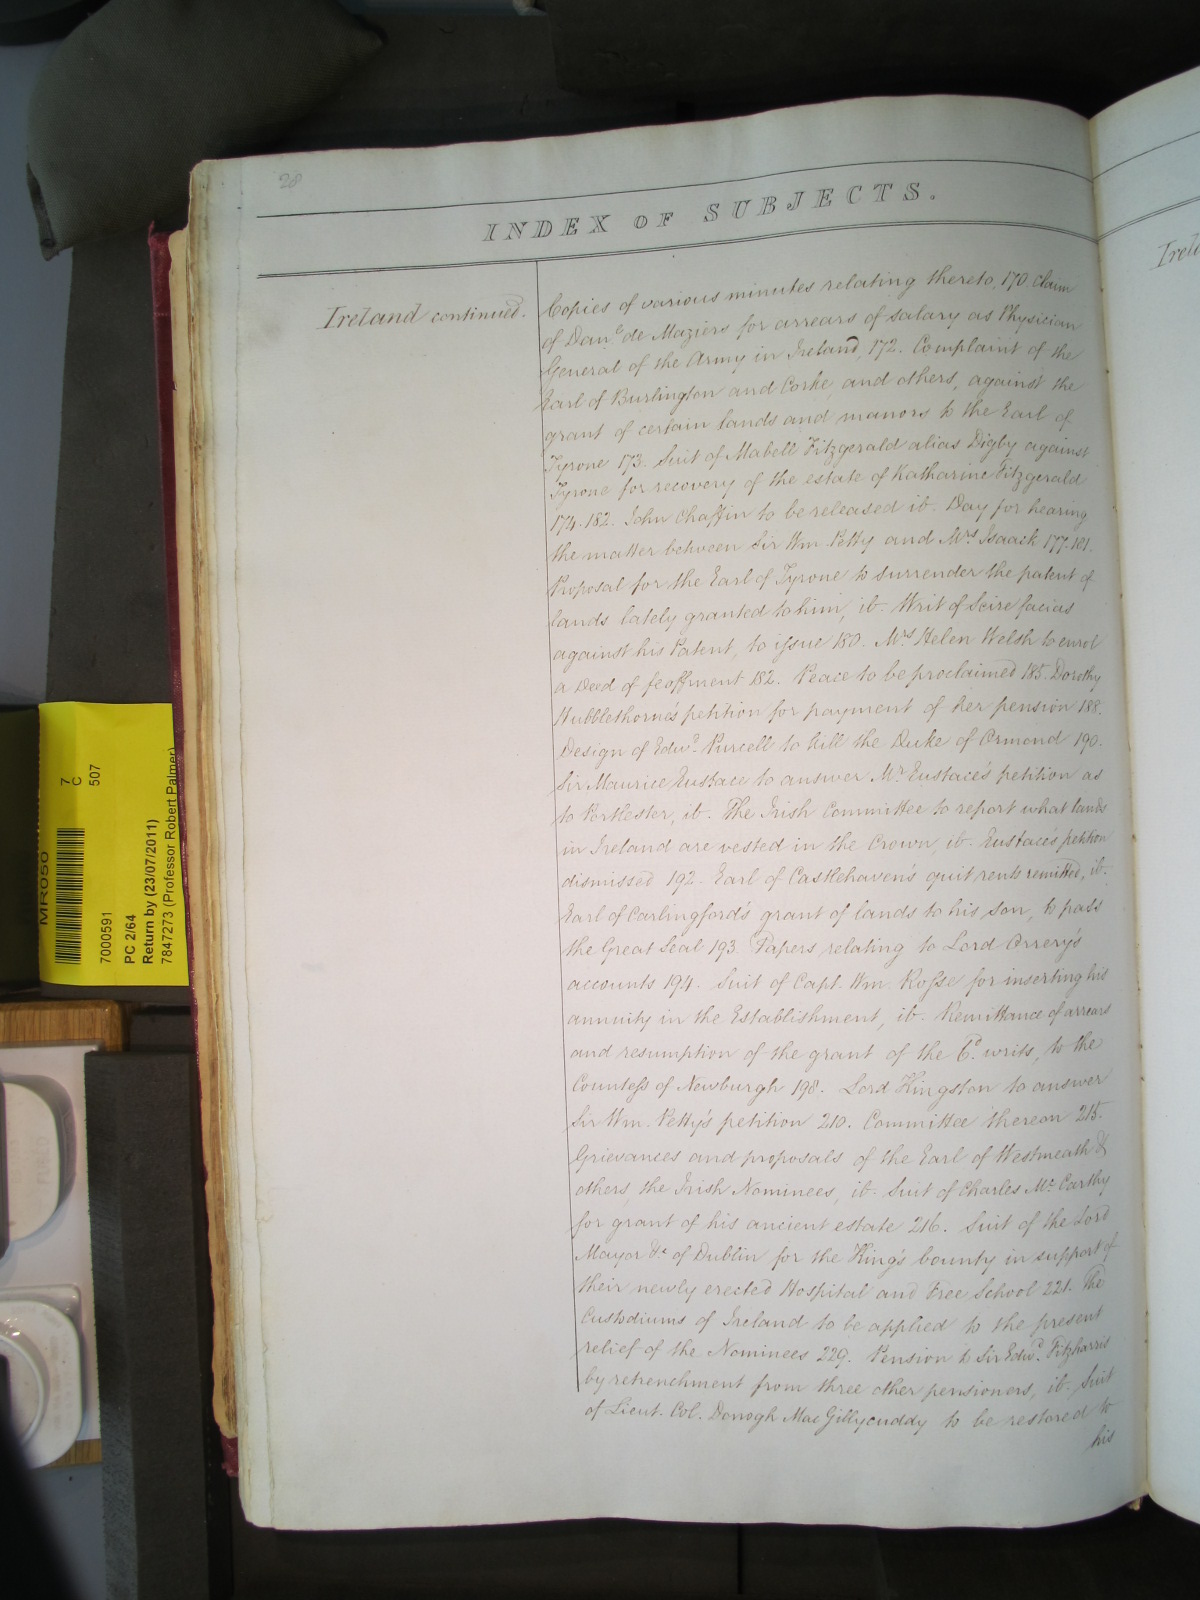 28
INDEX OF SUBJECTS.
Ireland continued.
Copies of various minutes relating thereto, 170 Claim
of Danl. de Maziers for arrears of salary as Physician
General of the Army in Ireland, 172. Complaint of the
Earl of Burlington and Corke, and others, against the
grant of certain lands and manors to the Earl of
Tyrone 173. Suit of Mabell Fitzgerald alias Digby against
Tyrone for recovery of the estate of Katharine Fitzgerald
174.182. John Chaffin to be released ib. Day for hearing
the matter between Sir Wm. Petty and Mrs. Isaack 177.181.
Proposal for the Earl of Tyrone to surrender the patent of
lands lately granted to him, ib. Writ of Scire facias
against his Patent, to issue 180. Mrs Helen Welsh to enrol
a Deed of feoffment 182. Peace to be proclaimed 185. Dorothy
Hubblethorne's petition for payment of her pension 188.
Design of Edwd. Purcell to kill the Duke of Ormond 190.
Sir Maurice Eustace to answer Mr. Eustace's petition as
to Portlester, ib. The Irish Committee to report what lands
in Ireland are vested in the Crown, ib. Eustace's petition
dismissed 192. Earl of Castlehaven's quit rents remitted, ib.
Earl of Carlingford's grant of lands to his son, to pass
the Great Seal 193. Papers relating to Lord Orrery's
accounts 194. Suit of Capt. Wm. Rosse for inserting his
annuity in the Establishment, ib. Remittance of arrears
and resumption of the grant of the 6d. writs, to the
Countess of Newburgh 198. Lord Kingston to answer
Sir Wm. Petty's petition 210. Committee thereon 215.
Grievances and proposals of the Earl of Westmeath &
others, the Irish Nominees, ib. Suit of Charles Mc. Carthy
for grant of his ancient estate 216. Suit of the Lord
Mayor &c of Dublin for the King's bounty in support of
their newly erected Hospital and Free School 221. The
Custodiums of Ireland to be applied to the present
relief of the Nominees 229. Pension to Sir Edwd. Fitzharris
by retrenchment from three other pensioners, ib. Suit
of Lieut. Col. Donogh Mac Gillycuddy to be restored to
his
MR050
7
C
507
7000591
PC 2/64
Return by (23/07/2011)
7847273 (Professor Robert Palmer)